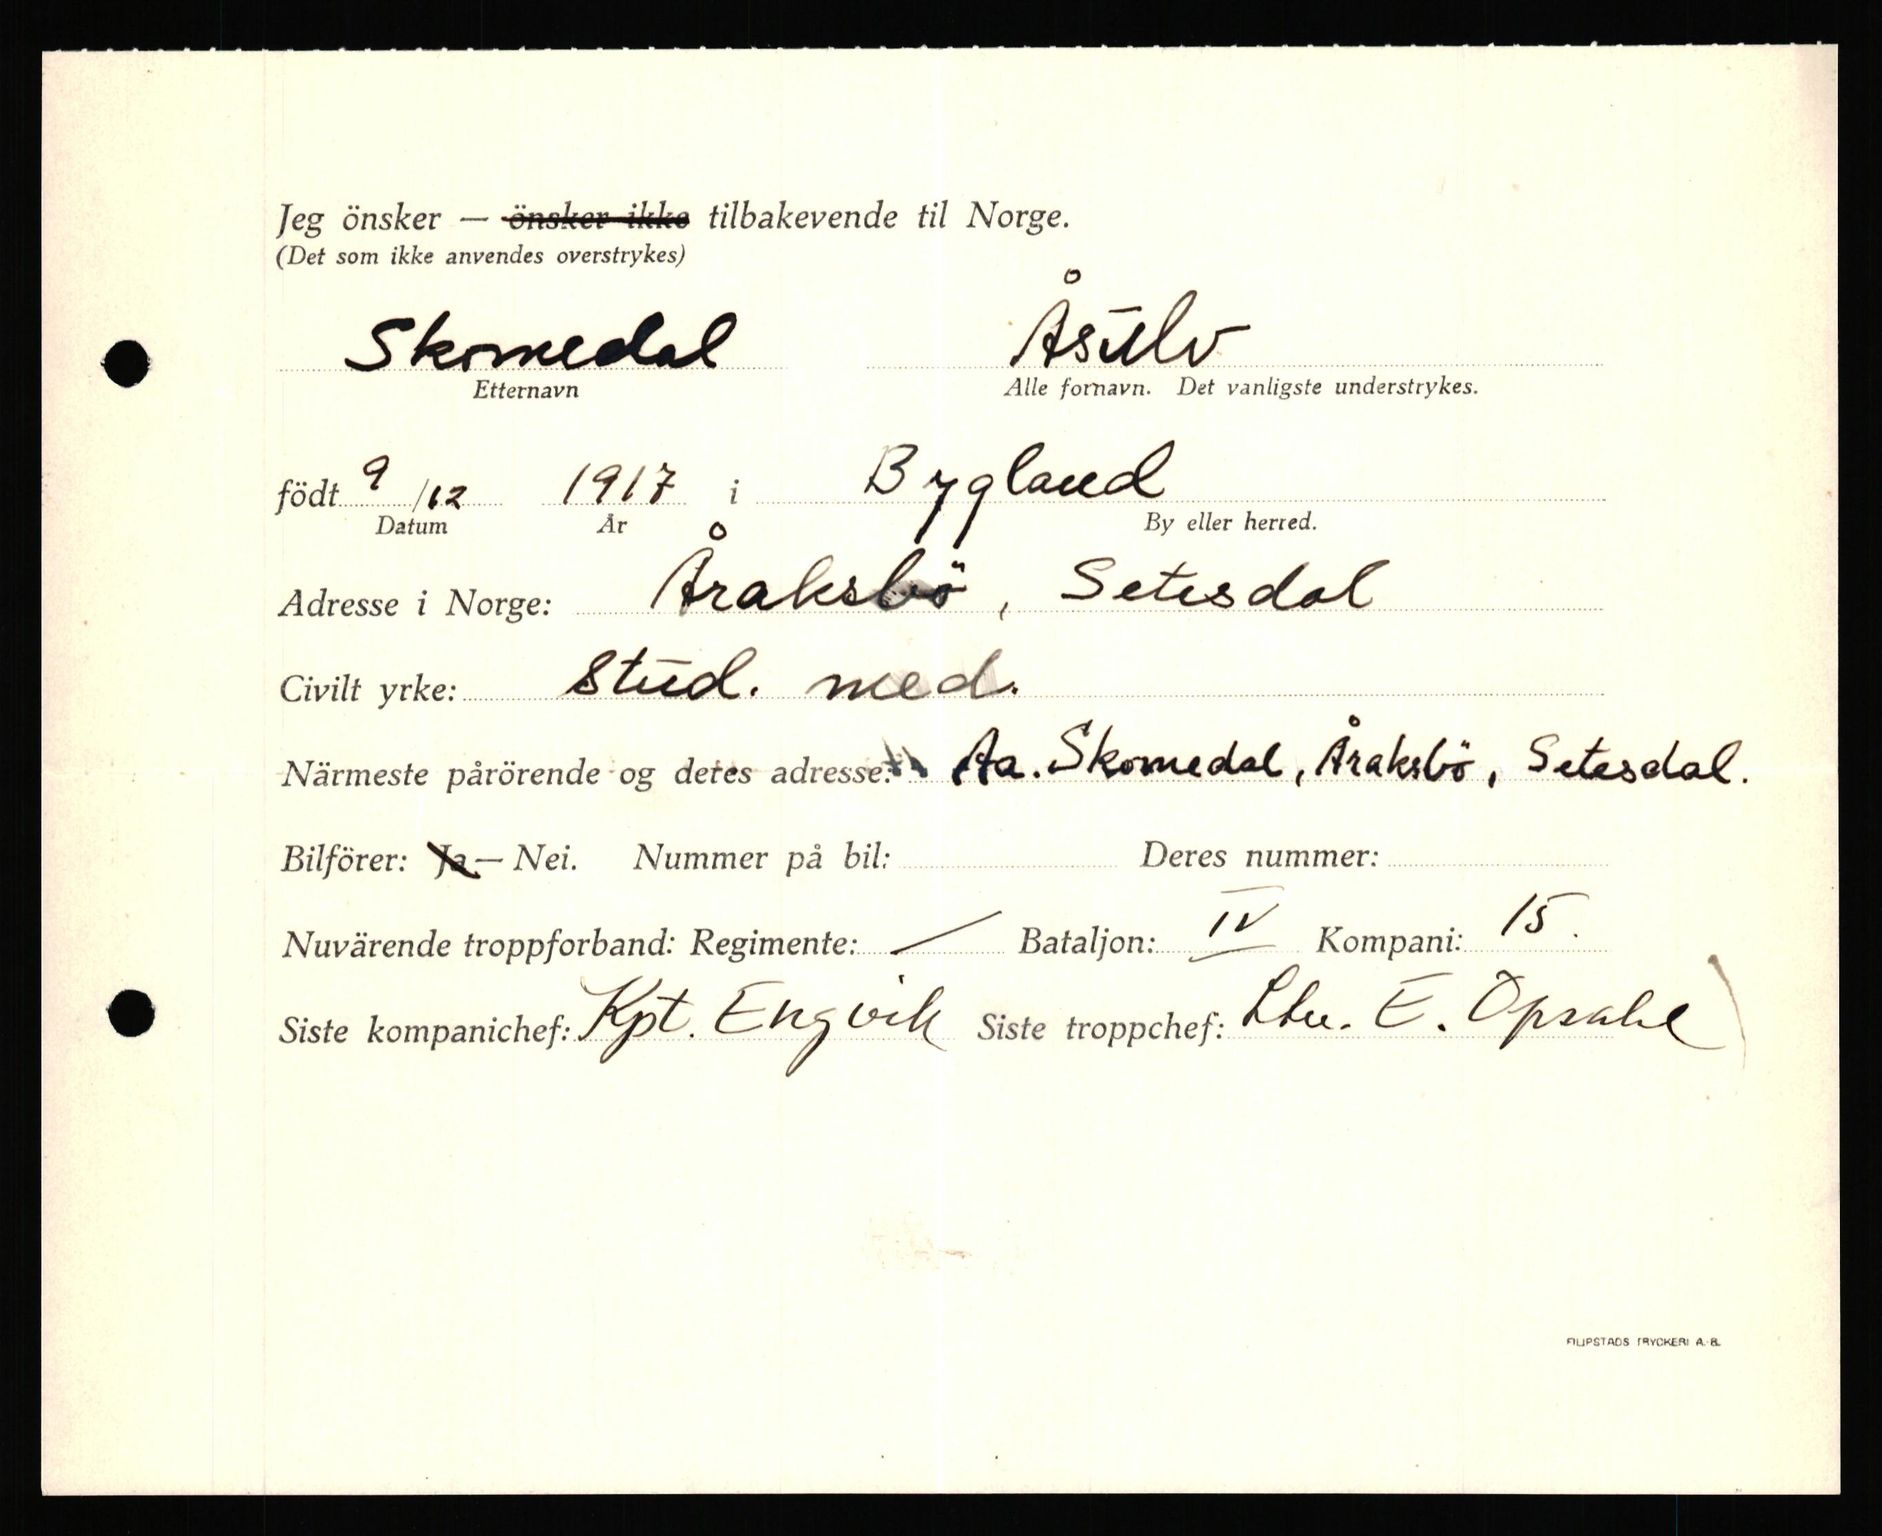 Jeg önsker — önsker ikke tilbakevende til Norge.
(Det som ikke anvendes overstrykes)
Skomedal Åsulv
Etternavn Alle fornavn. Det vanligste understrykes.
födt 9/12 1917 i Bygland
Datum År By eller herred.
Adresse i Norge: Åraksbö, Setesdal
Civilt yrke: stud. med.
Närmeste pårörende og deres adresse: Aa. Skomedal, Åraksbö, Setesdal.
Bilförer: Ja — Nei. Nummer på bil: Deres nummer:
Nuvärende troppforband: Regimente: / Bataljon: IV Kompani: 15.
Siste kompanichef: Kpt. Engvik Siste troppchef: Ltn. E. Opsahl
FILIPSTADS TRYCKERI A.-B.